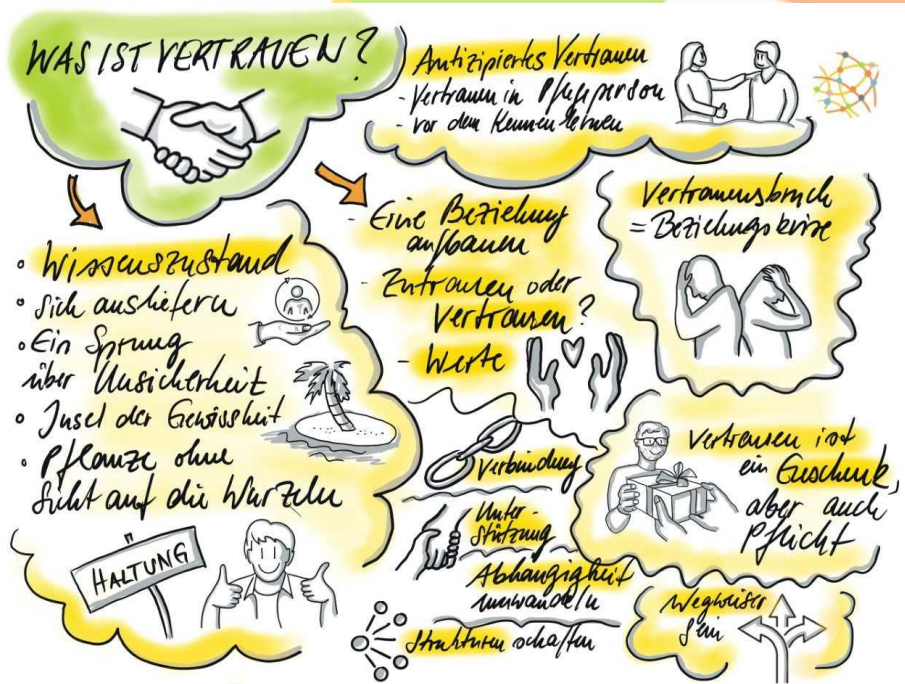 WAS IST VERTRAUEN?
Antizipiertes Vertrauen
- Vertrauen in Pflegeperson
- vor dem Kennenlernen
• Wissenszustand
• Sich ausliefern
• Ein Sprung
über Unsicherheit
• Insel der Gewissheit
• Pflanze ohne
Sicht auf die Wurzeln
HALTUNG
- Eine Beziehung
aufbauen
- Zutrauen oder
Vertrauen?
- Werte
Verbindung
Unter-
stützung
Abhängigkeit
umwandeln
Strukturen schaffen
Vertrauensbruch
= Beziehungskrise
Vertrauen ist
ein Geschenk,
aber auch
Pflicht
Wegweiser
sein